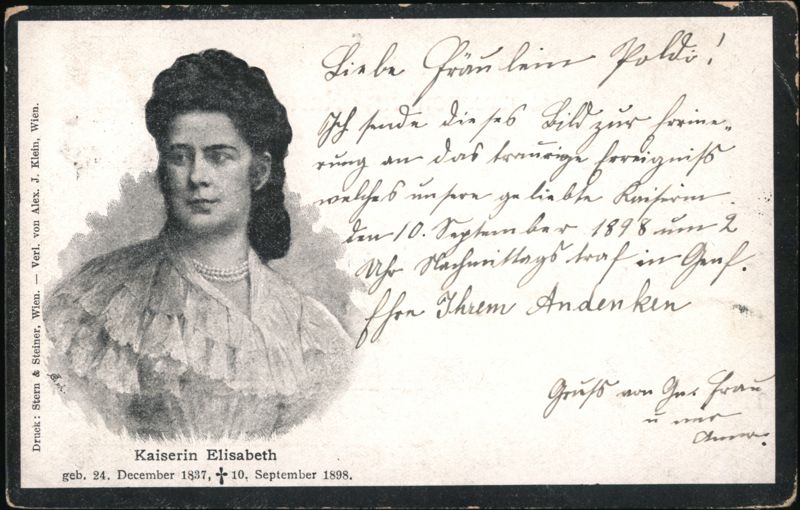 Liebe Fräulein Poldi!
Ich sende dieses Bild zur Errine„
rung an das traurige Erreigniss
welches unsere geliebte Kaiserin
den 10. September 1898 um 2
Uhr Nachmittags traf in Genf.
Ehre Ihrem Andenken
Gruss von Gn. Frau
u mir
Anna.
Kaiserin Elisabeth
geb. 24. December 1837, ✝ 10. September 1898.
Druck: Stern & Steiner, Wien. — Verl. von Alex. J. Klein, Wien.